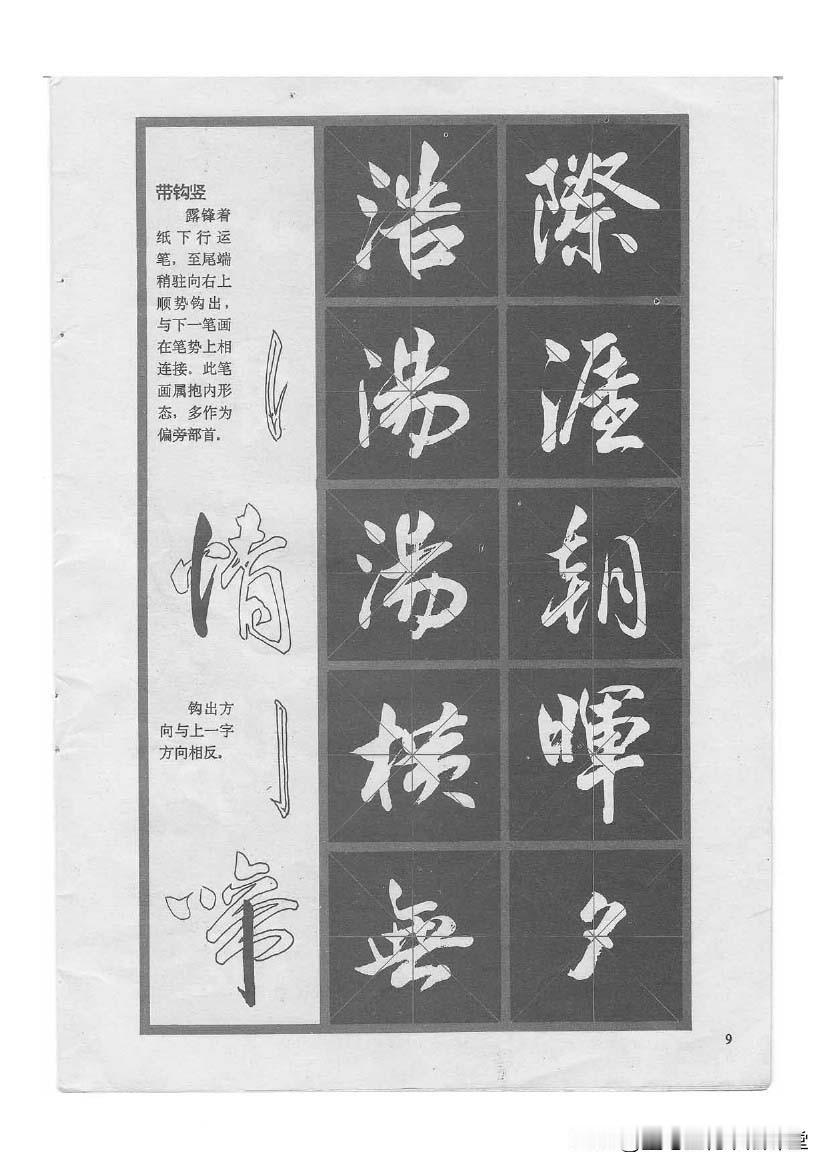 带钩竖
露锋着
纸下行运
笔，至尾端
稍驻向右上
顺势钩出，
与下一笔画
在笔势上相
连接。此笔
画属抱内形
态，多作为
偏旁部首。
情
钩出方
向与上一字
方向相反。
啼
浩湯湯横無
際涯朝暉夕
9